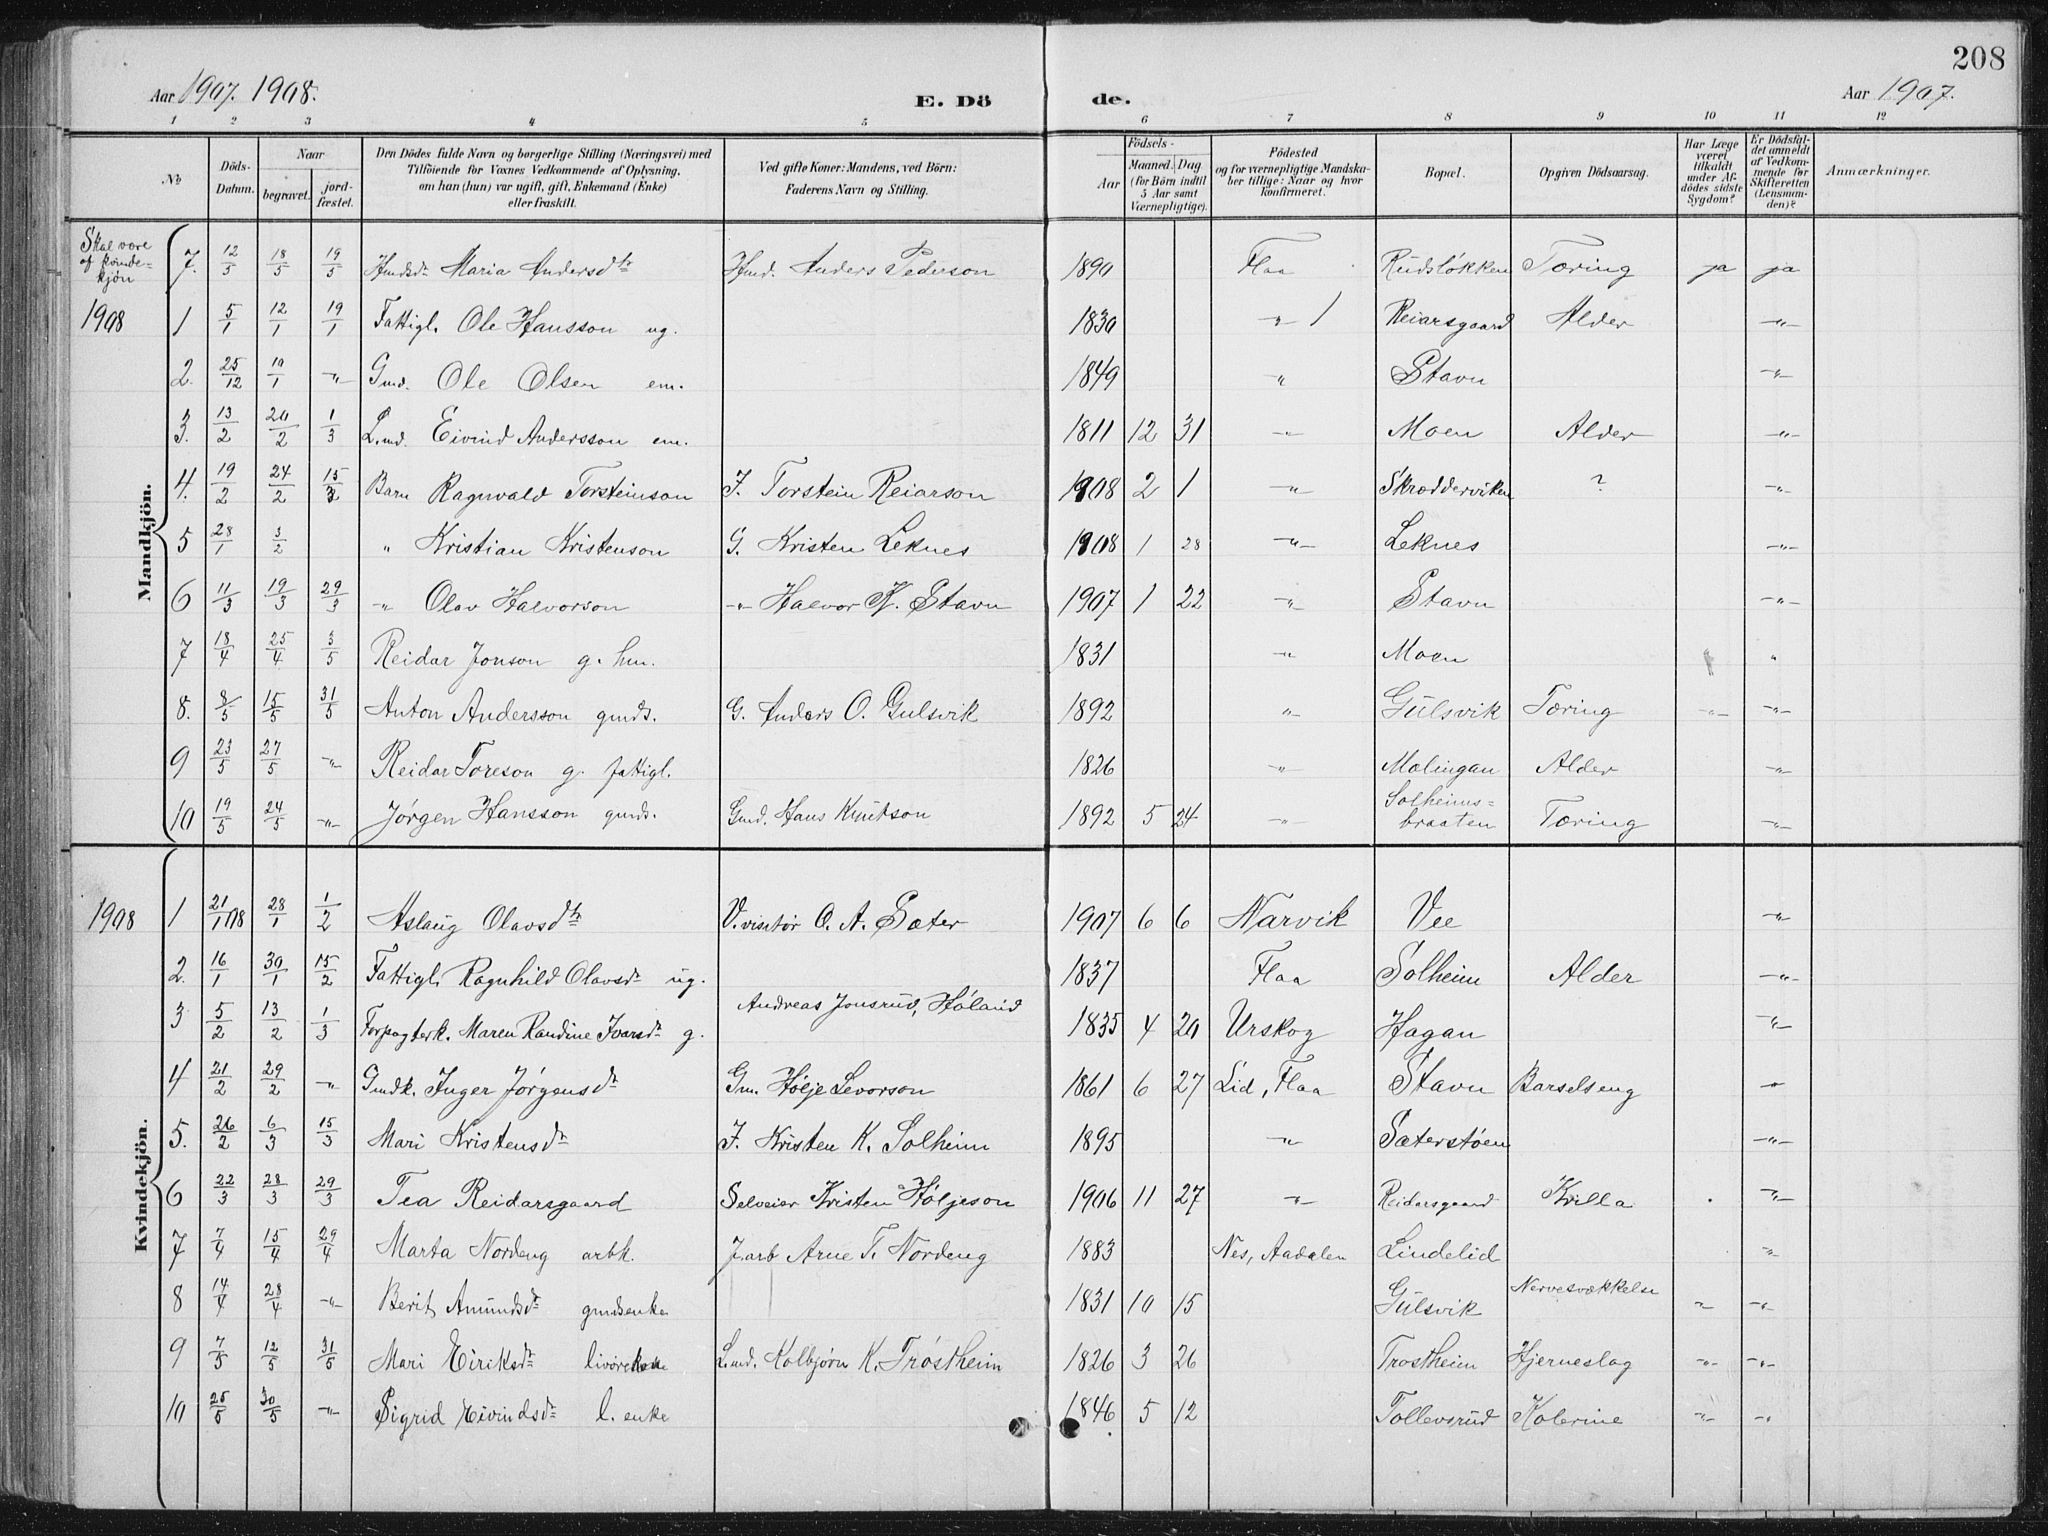 208
Aar 1907. 1908.
E. Dö
de.
Aar 1907.
1 2 3 4 5 6 7 8 9 10 11 12
No
Döds-Datum.
Naar
begravet.
jord-fæstet.
Den Dödes fulde Navn og borgerlige Stilling (Næringsvei) med
Tilföiende for Voxnes Vedkommende af Oplysning,
om han (hun) var ugift, gift, Enkemand (Enke)
eller fraskilt.
Ved gifte Koner: Mandens, ved Börn:
Faderens Navn og Stilling.
Födsels-
Aar
Maaned. Dag
(for Börn indtil
5 Aar samt
Værnepligtige).
Födested
og for værnepligtige Mandska-
ber tillige: Naar og hvor
konfirmeret.
Bopæl.
Opgiven Dödsaarsag.
Har Læge
været
tilkaldt
under Af-
dödes sidste
Sygdom?
Er Dödsfal-
det anmeldt
af Vedkom-
mende for
Skifteretten
(Lensman-
den)?
Anmærkninger.
Skal være
af kvinde-
kjön
7. 12/5 18/5 19/5 Hmdsdr Maria Andersdtr Hmd. Anders Pederson 1890 Flaa Rudsløkken Tæring ja ja
Mandkjön.
1908 1 5/1 12/1 19/1 Fattigl. Ole Hansson ug. 1830 -"- Reiarsgaard Alder -"-
2. 25/12 19/1 -"- Gmd. Ole Olsen em. 1849 -"- Stavn -"-
3. 13/2 20/2 1/3 L.md. Eivind Andersson em. 1811 12 31 -"- Moen Alder -"-
4. 19/2 24/2 15/3 Barn Ragnvald Torsteinson F. Torstein Reiarson 1908 2 1 -"- Skræddervíken ? -"-
5 28/1 3/2 " Kristian Kristenson G. Kristen Leknes 1908 1 28 -"- Leknes -"-
6 11/3 19/3 29/3 -"- Olav Halvorson -"- Halvor K. Stavn 1907 1 22 -"- Stavn -"-
7 18/4 25/4 3/5 Reidar Jonson g. hm. 1831 -"- Moen "
8. 8/5 15/5 31/5 Anton Andersson gmds. G. Anders O. Gulsvik 1892 -"- Gulsvik Tæring -"- -"-
9 23/5 27/5 -"- Reidar Toreson g. fattigl. 1826 -"- Molingan Alder -"-
10 19/5 24/5 -"- Jørgen Hansson gmds. Gmd. Hans Knutson 1892 5 24 -"- Solheims=
braaten Tæring -"-
Kvindekjön.
1908 1 21/1 08 28/1 1/2 Aslaug Olavsdtr V.visitør O. A. Sæter 1907 6 6 Narvik Vee -"-
2. 16/1 30/1 15/2 Fattigl. Ragnhild Olavsdr ug. 1837 Flaa Solheim Alder -"-
3 5/2 13/2 1/3 Forpagterk. Maren Randine Ivarsdr g. Andreas Jonsrud, Høland 1835 4 20 Urskog Hagan -"-
4 21/2 29/2 -"- Gmdk. Inger Jørgensdr Gm. Hølje Levorson 1861 6 27 Lid, Flaa Stavn Barselseng -"-
5. 26/2 6/3 15/3 Mari Kristensdr F. Kristen K. Solheim 1895 -"- Sæterstøen -"-
6 22/3 28/3 29/3 Tea Reidarsgaard Selveier Kristen Høljeson 1906 11 27 -"- Reidarsgaard Krilla -"-
7 7/4 15/4 29/4 Marta Nordeng arbk. J.arb Arne T. Nordeng 1883 Nes, Aadalen Lindelid -"-
8 14/4 28/4 -"- Berit Amundsdr gmdsenke 1831 10 15 Gulsvik Nervesvækkelse -"- -"-
9 7/5 12/5 31/5 Mari Eiriksdr L.md. Kolbjørn K. Trøstheim 1826 3 26 Trøstheim Hjerneslag -"- -"-
10 25/5 30/5 -"- Sigrid Eivindsdr l. enke 1846. 5 12 Tollevsrud Kolerine -"- -"-